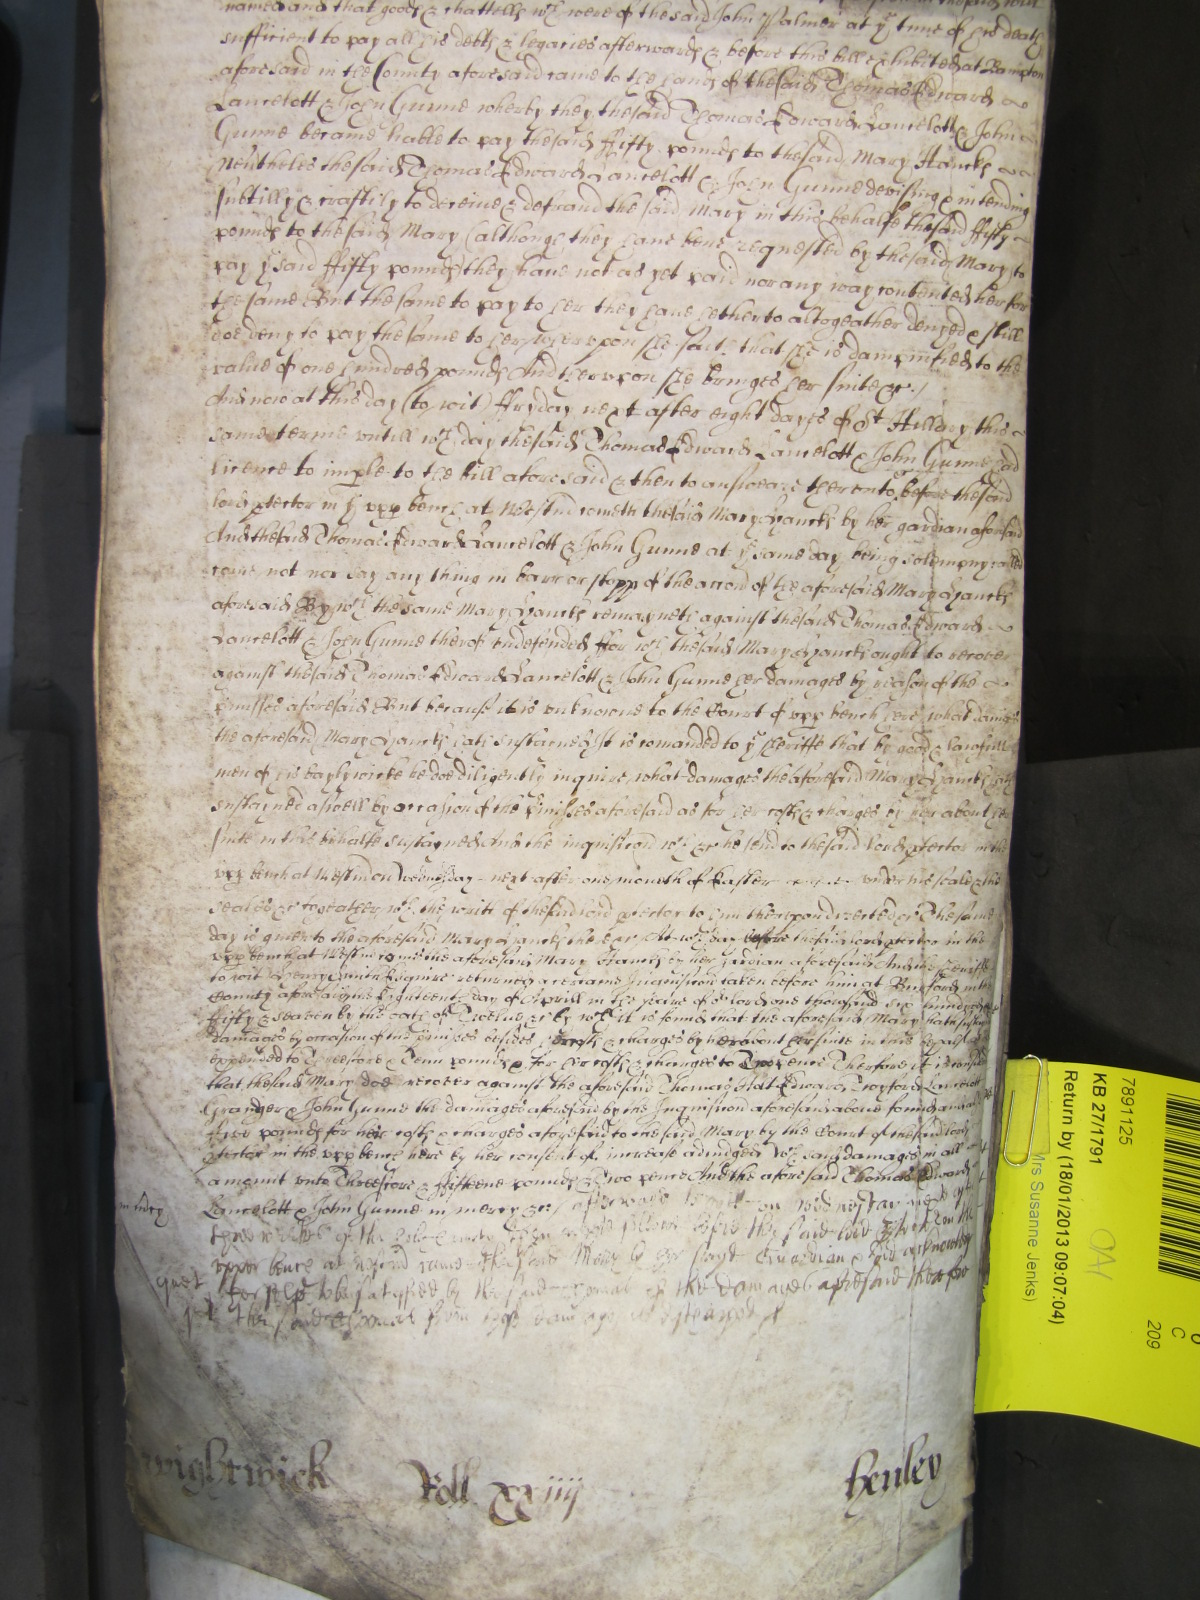 named and that goods & chattells wch were of the said John Palmer at ye time of his death
sufficient to pay all his debts & legacies afterwards & before this bill exhibited at Bampton
aforesaid in the County aforesaid came to the hands of the said Thomas Edward
Lancelott & John Gunne wherby they the said Thomas Edward Lancelott & John
Gunne became liable to pay the said ffifty pounds to the said Mary Hancks
Neutheles the said Thomas Edward Lancelott & John Gunne devising & intending
subtilly & craftily to deceiue & defraud the said Mary in this behalfe the said ffifty
pounds to the said Mary (although they haue bene requested by the said Mary to
pay ye said ffifty pounds) they haue not as yet paid nor any way contented her for
the same But the same to pay to her they haue hetherto altogeather denyed & still
doe deny to pay the same to her wherevpon she saith that she is dampnified to the
value of one hundred pounds And therevpon she bringes her suite &c /
And now at this day (to wit) ffryday next after eight dayes of St Hillary this
same terme vntill wch day the said Thomas Edward Lancelott & John Gunne had
licence to imple to the bill aforesaid & then to answeare therevnto before the said
lord ptector in ye vpp bench at Westm cometh the said Mary Hancks by her gardian aforesaid
And the said Thomas Edward Lancelott & John Gunne at ye same day being solempny called
come not nor say any thing in barr or stopp of the accon of the aforesaid Mary Hancks
aforesaid By wch the same Mary Hancks remayneth against the said Thomas Edward
Lancelott & John Gunne therof vndefended ffor wch the said Mary Hancks ought to recover
against the said Thomas Edward Lancelott & John Gunne her damages by reason of the
pmisses aforesaid But because it is vnknowne to the Court of vpp bench here what damages
the aforesaid Mary Hancks hath sustained It is comanded to ye sheriffe that by good & lawfull
men of his baylywicke he doe diligently inquire what damages the aforesaid Mary Hancks hath
sustayned aswell by occasion of the pmisses aforesaid as for her costs & charges by her about her
suite in this behalfe sustayned And the inquisicon wch &c he send to the said Lord ptector in the
vpp bench at Westm on Wednesday next after one month of Easter vnder his seale & the
seales &c togeather wth the writt of the said lord ptector to him thervpon directed &c The same
day is giuen to the aforesaid Mary Hancks there &c At wch day before the said lord ptector in the
vpp bench at Westm came the aforesaid Mary Hancks by her Gardian aforesaid And the Sheriffe
to wit Henry Smith Esquire returned a certaine Inquisicon taken before him at in the
County aforesaid the Eighteenth day of Aprill in the yeare of or lord one thousand six hundred
fifty & seaven by the oath of Twelue &c by wch it is found that the aforesaid Mary hath susteyned
damages by occasion of the pmisses besides her costs & charges by her about her suite in this behalfe
expended to Threescore & Tenn pounds & for her costs & charges to Two pence Therfore it is considered
that the said Mary doe recover against the aforesaid Thomas Edward Lancelott
Granger & John Gunne the damages aforesaid by the Inquisicon aforesaid aboue found and alsoe
ffive pounds for her costs & charges aforesaid to the said Mary by the Court of the said lord
ptector in the vpp bench here by her consent of increase adiudged Wch said damages in all
amount vnto Threescore & ffifteene pounds & Two pence And the aforesaid Thomas Edward
Lancelott & John Gunne in mercy &c / afterwards to wit on wednesday next after
three weekes of the holy Trinity then next following before the said lord ptector in the
vpper bench at Westm came the said Mary by her sayd Guardian & did acknowledge
her selfe to bee satisfied by the said Thomas of the damages aforesaid therefore
the said Thomas from those damages is discharged &c
in mercy
quiet
wightwick
Roll xxiiij
henley
7891125
KB 27/1791
Return by (18/01/2013 09:07:04)
Mrs Susanne Jenks)
C
209